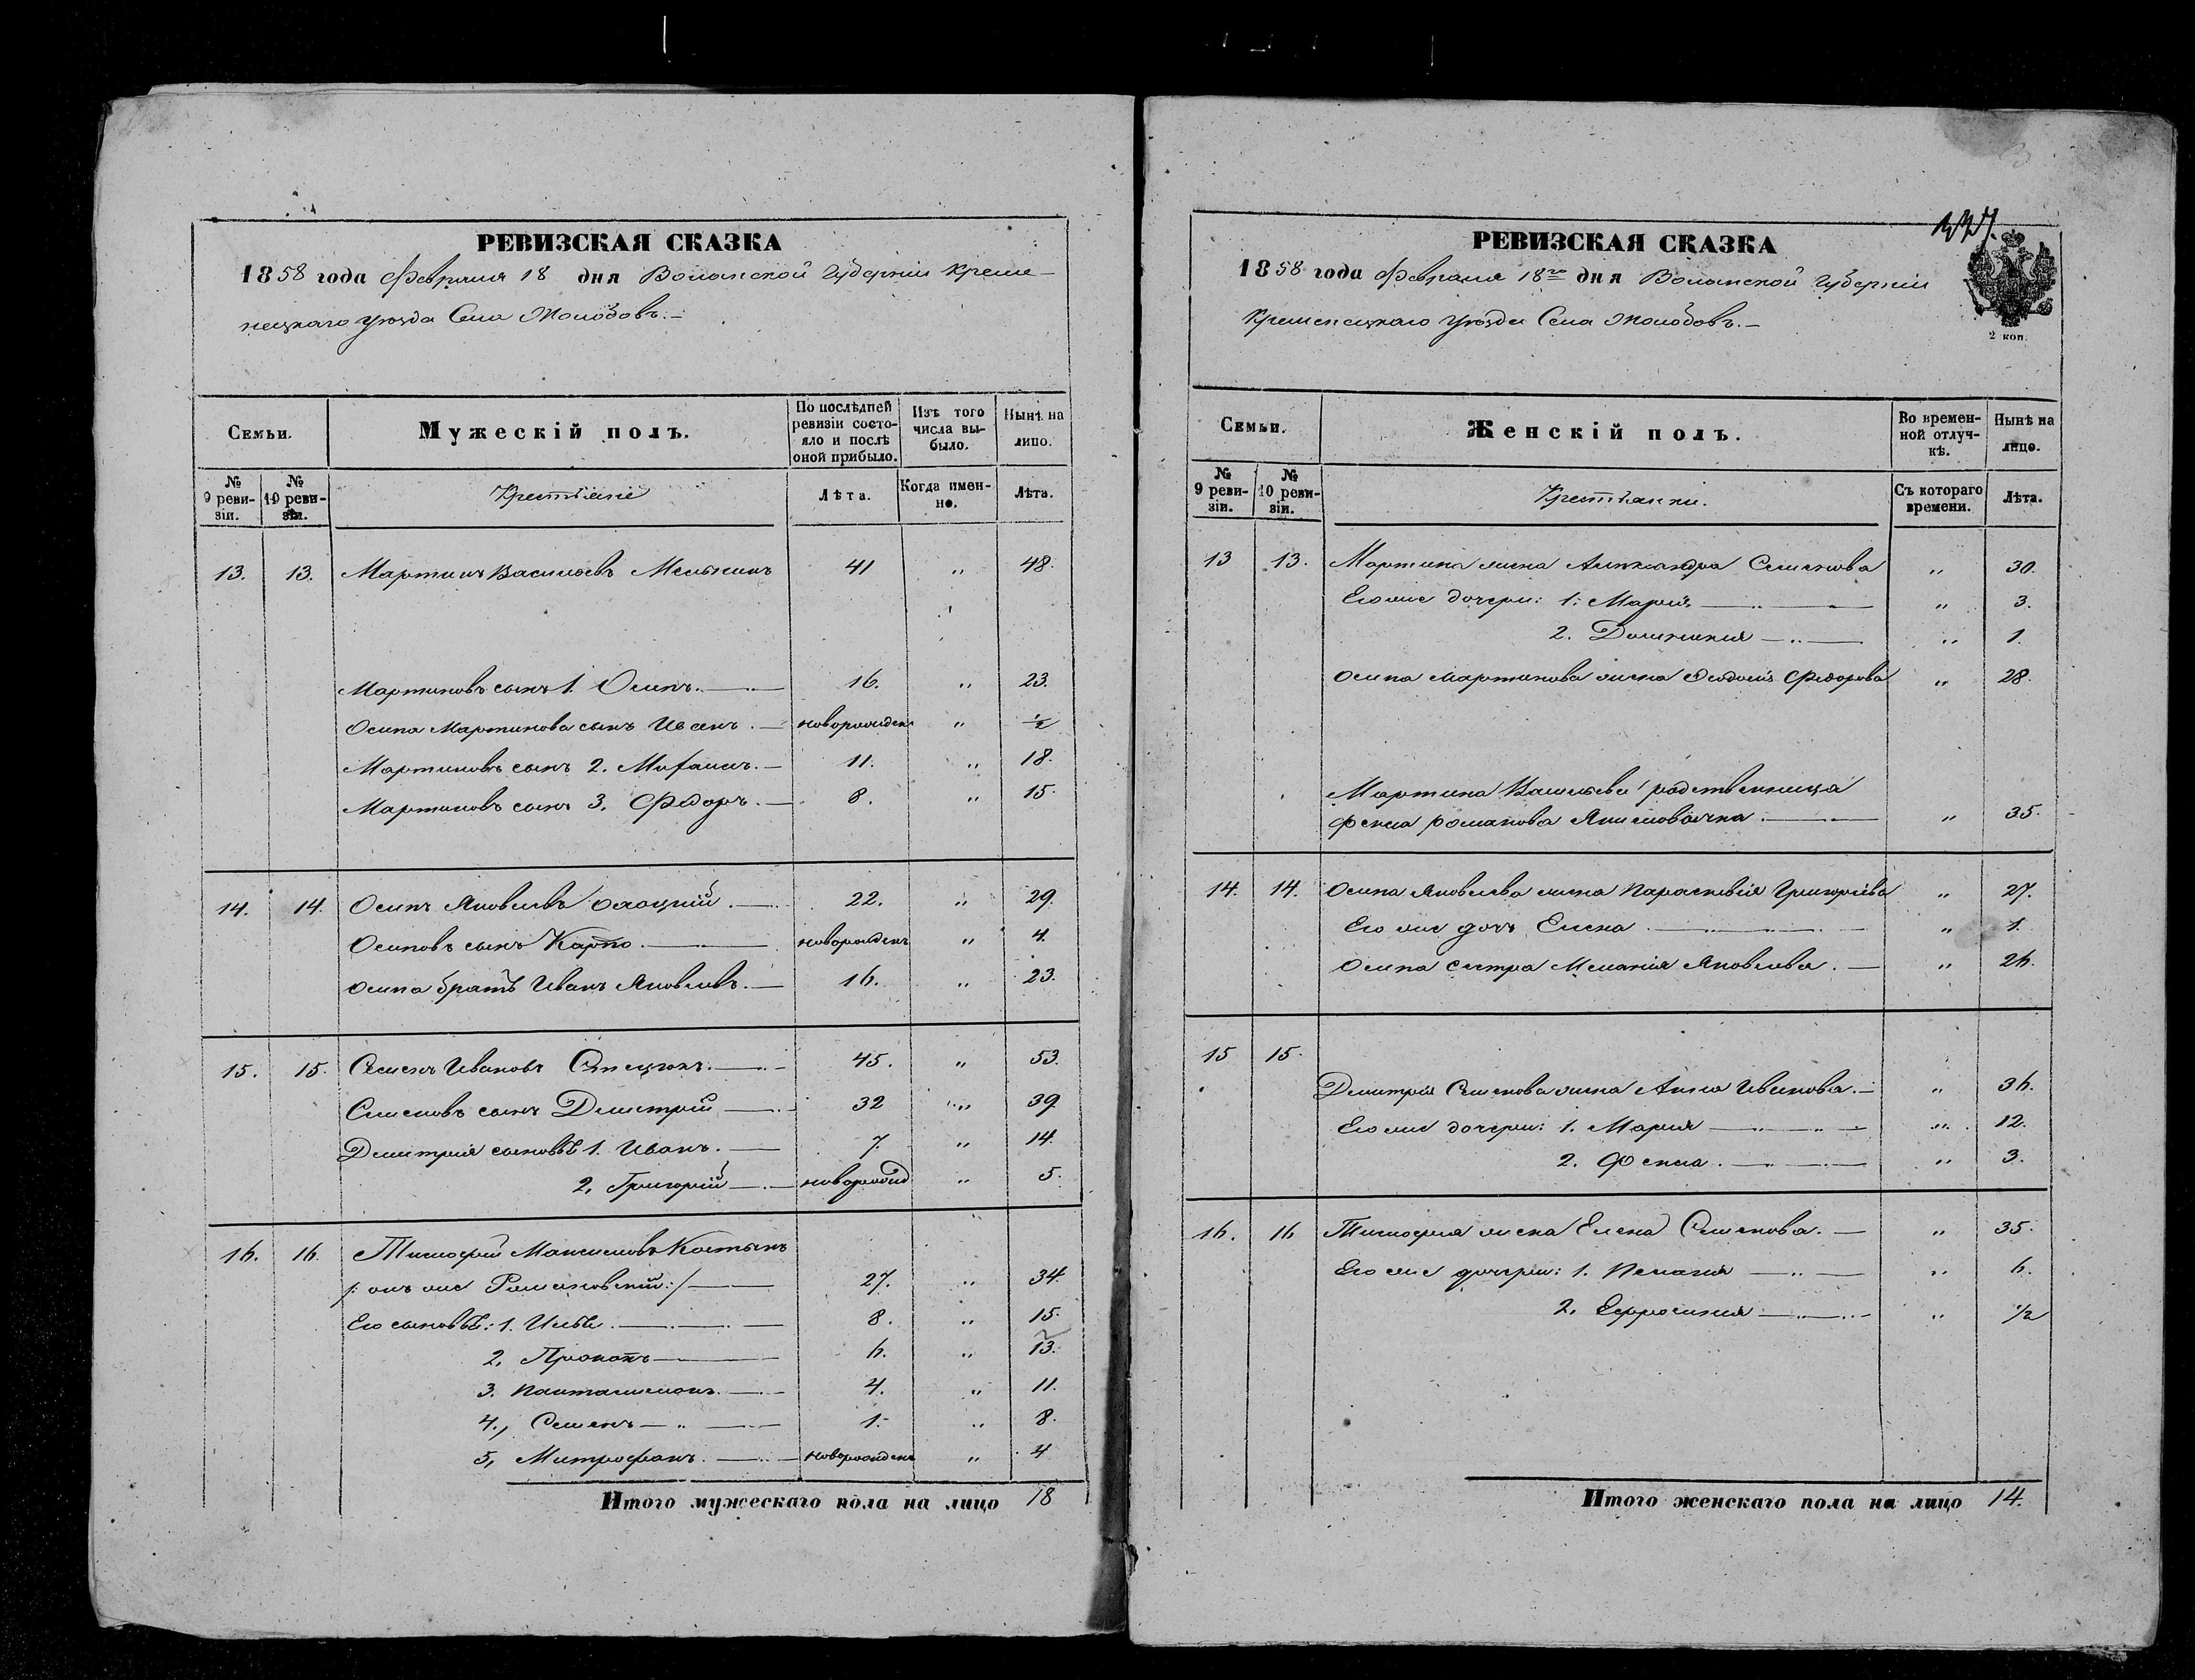 РЕВИЗСКАЯ СКАЗКА
1858 года Февраля 18 дня Волынской Губерніи Креме-
нецкаго уѣзда Села Жолобовъ.-
Семьи. Мужескій полъ. По послѣдней ревизіи состояло и послѣ оной прибыло. Изъ того числа выбыло. Нынѣ на лицо.
№ 9 ревизіи. № 10 ревизіи. Крестьяне Лѣта. Когда именно. Лѣта.
13. 13. Мартинъ Васильевъ Мельникъ 41 " 48.
Мартиновъ сынъ 1. Осипъ. 16. " 23.
Осипа Мартинова сынъ Иванъ. новорожден " ½
Мартиновъ сынъ 2. Михаилъ. 11. " 18.
Мартиновъ сынъ 3. Федоръ. 8. " 15.
14. 14. Осипъ Яковлевъ 22. " 29.
Осиповъ сынъ Карпо. новорожденъ " 4.
Осипа братъ Иванъ Яковлевъ. 16. " 23.
15. 15. Семенъ Ивановъ Стецюкъ. 45. " 53.
Семеновъ сынъ Дмитрій 32 " 39.
Дмитрія сыновья 1. Иванъ. 7. " 14.
2. Григорій новорожд " 5.
16. 16. Тимофей Максимовъ Костюкъ
/: онъ же :/ 27. " 34.
Его сыновья: 1. Илья. 8. " 15.
2. Прокопъ 6. " 13.
3. Пантелимонъ. 4. " 11.
4., Семенъ 1. " 8.
5, Митрофанъ. новорожденъ " 4
Итого мужескаго пола на лицо 18
РЕВИЗСКАЯ СКАЗКА
1858 года Февраля 18го дня Волынской Губерніи
Кременецкаго уѣзда Села Жолобовъ.-
2 коп.
Семьи. Женскій полъ. Во временной отлучкѣ. Нынѣ на лицо.
№ 9 ревизіи. № 10 ревизіи. Крестьянки. Съ котораго времени. Лѣта.
13 13. Мартина жена Александра Семенова " 30.
Его же дочери: 1. Марія " 3.
2. Домникия " 1.
Осипа Мартинова жена Федосія Федорова " 28.
Мартина Васильева родственница
Фекла Романова " 35.
14. 14. Осипа Яковлева жена Параскевія Григорієва " 27.
Его же дочь Елена " 1.
Осипа сестра Меланія Яковлева. " 26.
15 15.
Дмитрія Семенова жена Анна Иванова. " 36.
Его же дочери: 1. Мария " 12.
2. Фекла. " 3.
16. 16 Тимофея жена Елена Семенова. " 35.
Его же дочери: 1. Пелагия " 6.
2. Ефросиния " ½
Итого женскаго пола на лицо 14.